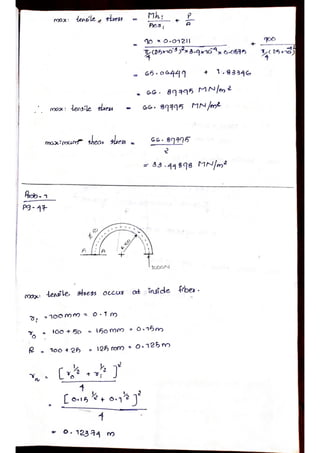 max: tensile stress = Mhi / Aeri + P / A
= 90 × 0.01211 / π/4 (25×10⁻³)² × 3.9×10⁻⁴ × 0.0375 + 900 / π/4 (25×10⁻³)²
= 65.06449 + 1.83346
= 66.89795 MN/m²
∴ max: tensile stress = 66.89795 MN/m²
maximum shear stress = 66.89795 / 2
= 33.44898 MN/m²
Prob-7
Pg-47
A A
5000N
max: tensile stress occur at inside fiber.
ri = 100mm = 0.1m
ro = 100+50 = 150mm = 0.15m
R = 100+25 = 125mm = 0.125m
rn = [ro^½ + ri^½]² / 4
= [0.15^½ + 0.1^½]² / 4
= 0.12374 m